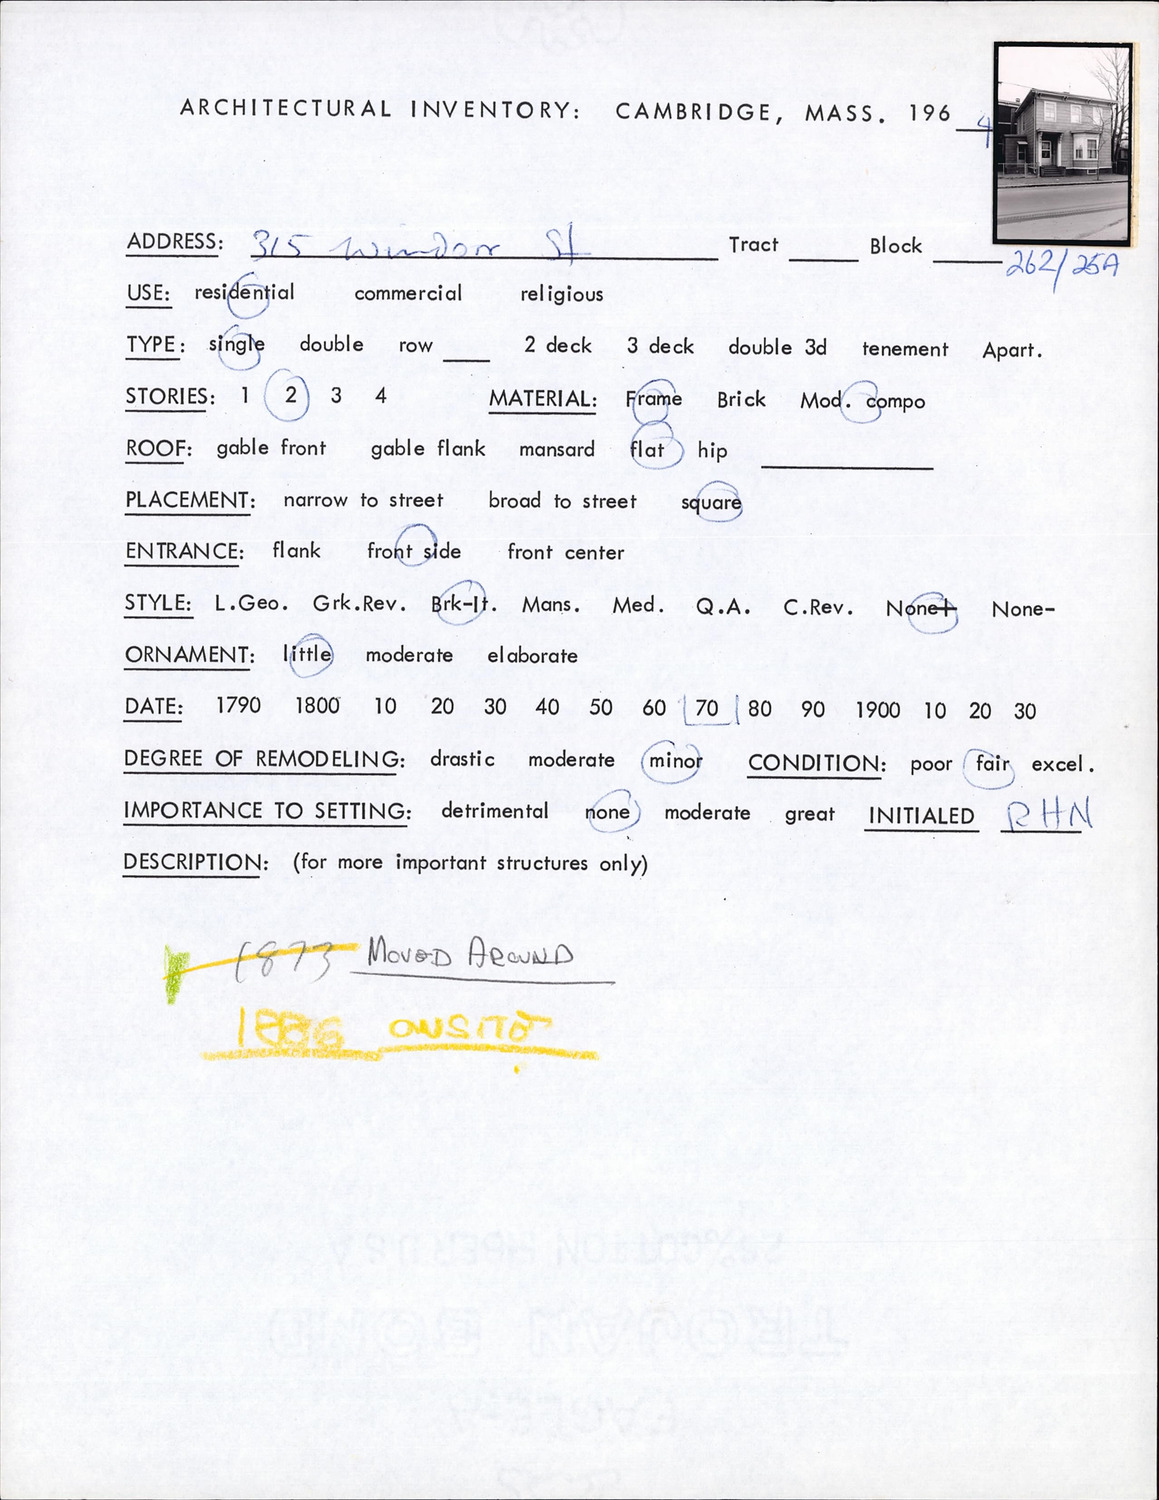 ARCHITECTURAL INVENTORY: CAMBRIDGE, MASS. 196 4
ADDRESS: 315 Windsor St Tract Block
262/25A
USE: residential commercial religious
TYPE: single double row 2 deck 3 deck double 3d tenement Apart.
STORIES: 1 2 3 4 MATERIAL: Frame Brick Mod. compo
ROOF: gable front gable flank mansard flat hip
PLACEMENT: narrow to street broad to street square
ENTRANCE: flank front side front center
STYLE: L.Geo. Grk.Rev. Brk-It. Mans. Med. Q.A. C.Rev. None+ None-
ORNAMENT: little moderate elaborate
DATE: 1790 1800 10 20 30 40 50 60 70 80 90 1900 10 20 30
DEGREE OF REMODELING: drastic moderate minor CONDITION: poor fair excel.
IMPORTANCE TO SETTING: detrimental none moderate great INITIALED RHN
DESCRIPTION: (for more important structures only)
1873 MOVED AROUND
1886 ONSITE